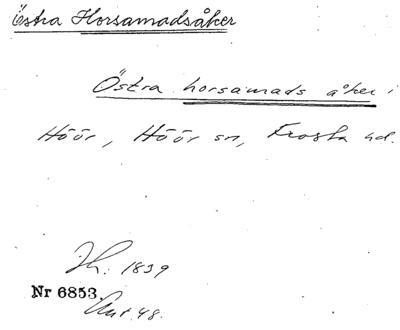 Östra Horsamadsåker
Östra horsamads åker i
Höör, Höör sn, Frosta hd.
Jh. 1839
Nr 6853.
Ant. 48.